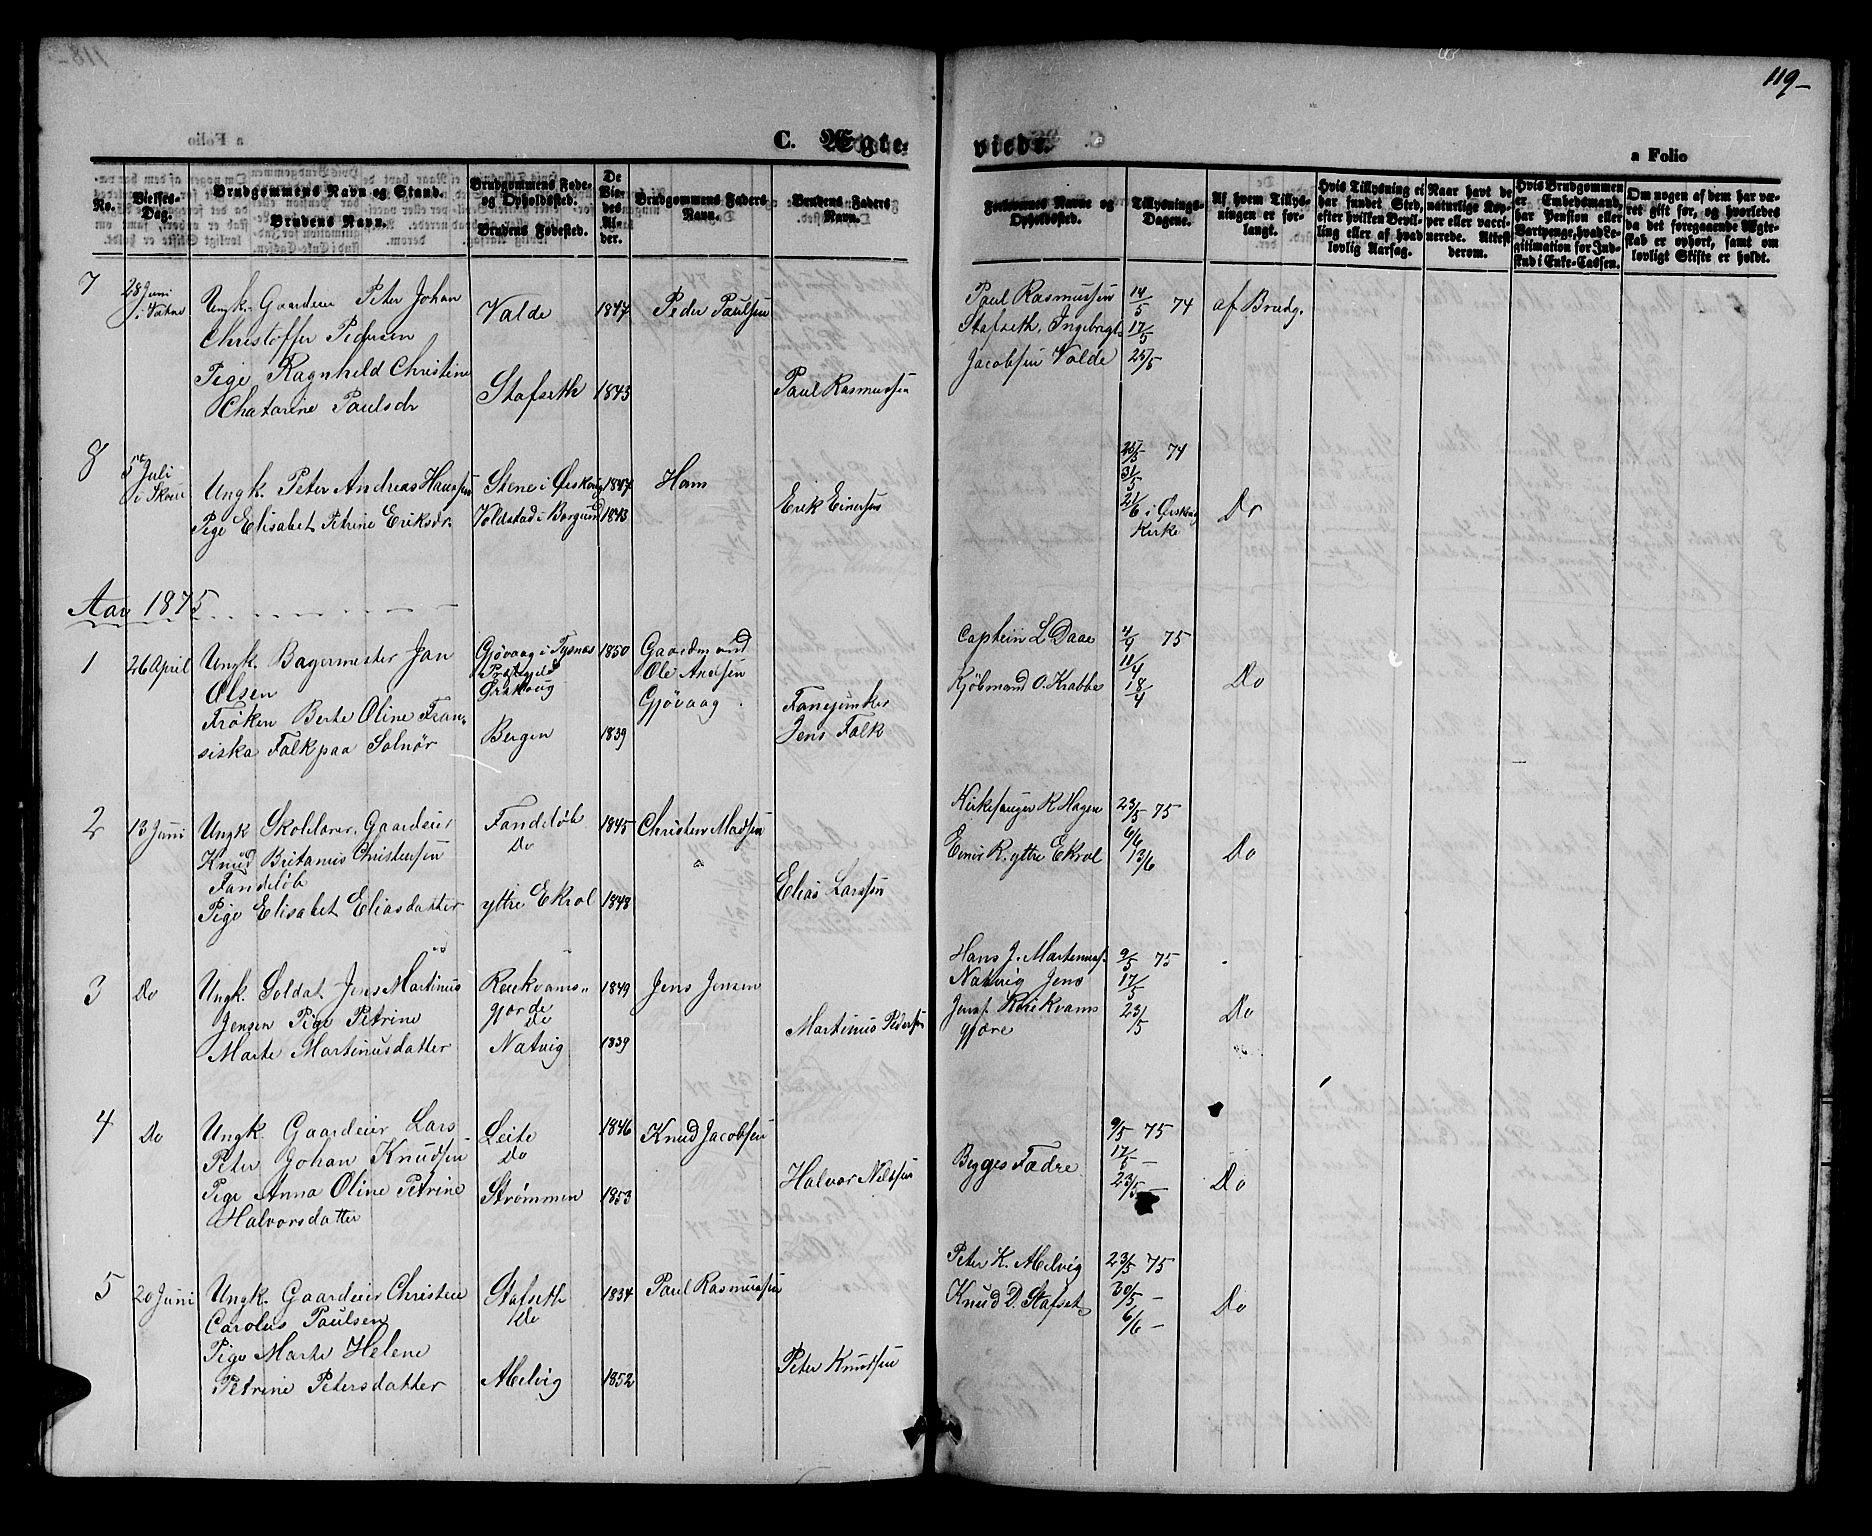 119-
C. Ægte-
viede.
a Folio
No.
Vielses-Dag.
Brudgommens Navn og Stand.
Brudens Navn.
Brudgommens Føde- og Opholdssted.
Brudens Fødested.
De Viedes Alder.
Brudgommens Faders Navn.
Brudens Faders Navn.
Forlovernes Navne og Opholdssted.
Tillysnings-Dagene.
Af hvem Tillysningen er forlangt.
Hvis Tillysning ei har fundet Sted, efter hvilken Bevilling eller af hvad lovlig Aarsag.
Naar havt de naturlige Kopper eller vaccinerede. Attest derom.
Hvis Brudgommen er Embedsmand, har Pension eller Vartpenge, hvad Legitimation for Indskud i Enke-Cassen.
Om nogen af dem har været gift før, og hvorledes da det foregaaende Ægteskab er ophørt, samt om lovligt Skifte er holdt.
7 28 Juni i Vatne
Ungk. Gaardeier Peter Johan
Christoffer Pedersen
Valde 1847 Peder Paulsen
Pige Ragnhild Christine
Chatarine Paulsdr
Stafseth 1843 Paul Rasmussen
Paul Rasmussen 14/5 74 af Brudg.
Stafseth, Ingebrigt 17/5
Jacobsen Valde 25/5
8 5te Juli i Skoue
Ungk. Peter Andreas Hanssen Stene i Ørskoug 1847 Hans
Pige Elisabet Petrine Eriksdr. Voldstad i Borgund 1843 Erik Einersen
25/5 74
31/5
21/6 i Ørskoug Kirke Do
Aar 1875
1 26 April
Ungk. Bagermester Jan
Olsen
Gjøvaag i Tysnæs
Præstegjeld
Ørskoug
1850 Gaardmand
Ole Andsen
Gjøvaag
Frøken Berte Oline Fran-
siska Falk paa Solnør
Bergen 1839 Fanejunker
Jens Falk
Captein L Daae 4/4 75
11/4
Kjøbmand O. Krabbe 18/4 Do
2 13 Juni
Ungk Skolelærer, Gaardeier
Knud Britanus Christensen
Fandeløb
Fandeløb
Do
1845 Christen Madsen
Pige Elisabet Eliasdatter yttre Ekrol 1848 Elias Larssen
Kirkesanger K Hagen 23/5 75
6/6
Einer R. yttre Ekrol 13/6 Do
3 Do
Ungk. Soldat Jens Martinus
Jensen Pige Petrine
Marte Martinusdatter
Rekkvams-
gjorde
Do
1849 Jens Jensen
Natvig 1839 Martinus Pedersen
Hans J. Martinus. 9/5 75
Natvig Jens 17/5
Jens. Rekkvams 23/5 Do
gjære
4 Do
Ungk. Gaardeier Lars
Peter Johan Knudsen
Leite
Do
1846 Knud Jacobsen
Pige Anna Oline Petrine
Halvorsdatter
Strømmen 1853 Halvor Nilssen
9/5 75
Begges Fædre 17/5 -
23/5 - Do
5 20 Juni
Ungk. Gaardeier Christen
Carolus Paulsen
Stafseth
Do
1834 Paul Rasmussen
Pige Marte Helene
Petrine Petersdatter
Melvig 1852 Peter Knudsen
Peter K. Melvig 23/5 75
Knud D. Stafset 30/5 -
6/6 - Do